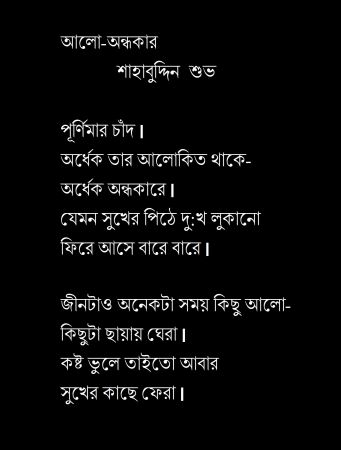 আলো-অন্ধকার
শাহাবুদ্দিন শুভ
পূর্ণিমার চাঁদ।
অর্ধেক তার আলোকিত থাকে-
অর্ধেক অন্ধকারে।
যেমন সুখের পিঠে দু:খ লুকানো
ফিরে আসে বারে বারে।
জীনটাও অনেকটা সময় কিছু আলো-
কিছুটা ছায়ায় ঘেরা।
কষ্ট ভুলে তাইতো আবার
সুখের কাছে ফেরা।